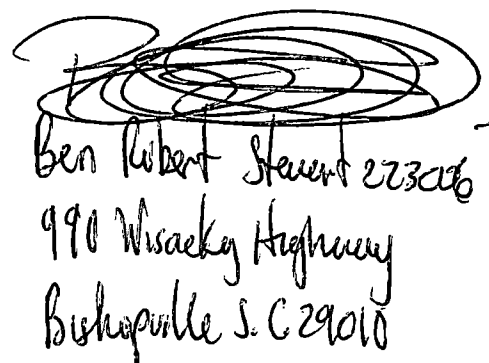 Ben Robert Stewert 223026
990 Wisacky Highway
Bishopville S.C 29010